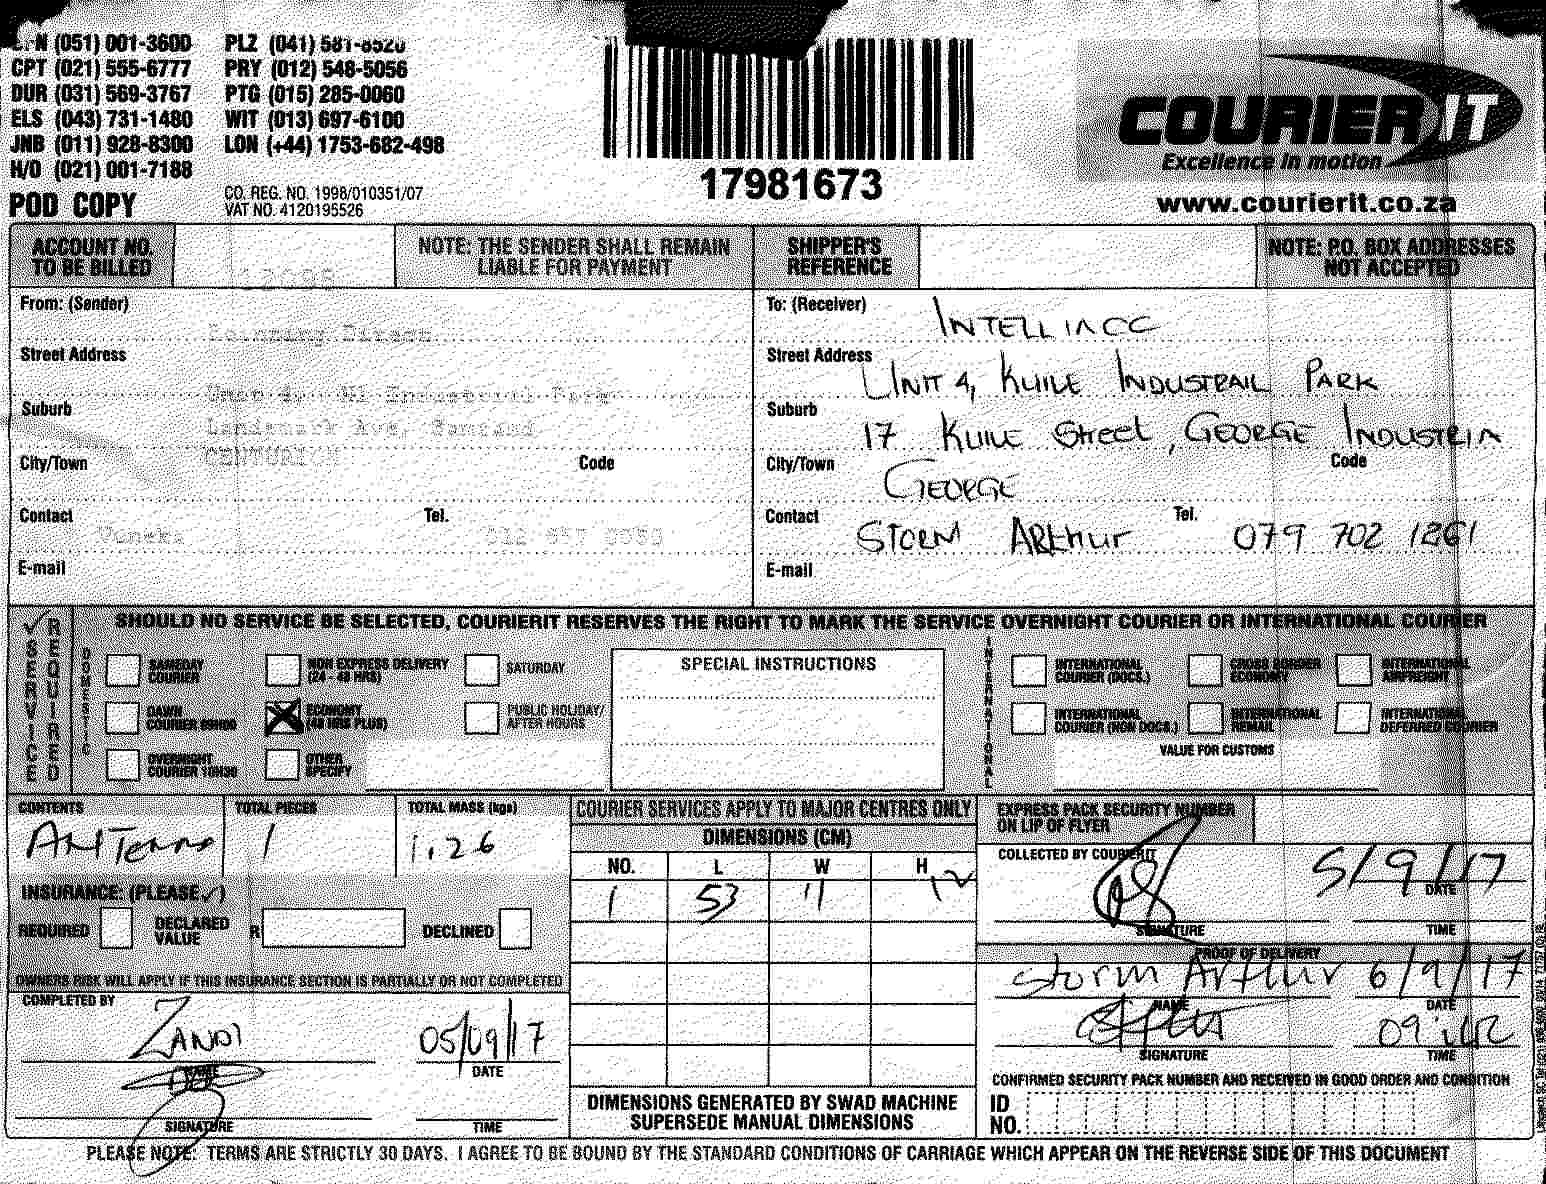 (051) 001-3600 PLZ (041) 581-8520
CPT (021) 555-6777 PRY (012) 548-5056
DUR (031) 569-3767 PTG (015) 285-0060
ELS (043) 731-1480 WIT (013) 697-6100
JNB (011) 928-8300 LON (+44) 1753-682-498
H/O (021) 001-7188
POD COPY
CO. REG. NO. 1998/010351/07
VAT NO. 4120195526
17981673
COURIER IT
Excellence in motion
www.courierit.co.za
ACCOUNT NO. TO BE BILLED
NOTE: THE SENDER SHALL REMAIN LIABLE FOR PAYMENT
SHIPPER'S REFERENCE
NOTE: P.O. BOX ADDRESSES NOT ACCEPTED
From: (Sender)
Street Address
Suburb
Landsmark Ave, Samrand
City/Town CENTURION Code
Contact Tel.
E-mail
To: (Receiver) INTELLIACC
Street Address UNIT 4, KUILE INDUSTRAIL PARK
Suburb 17 KUILE Street, GEORGE INDUSTRIA
City/Town GEORGE Code
Contact STORM ARthur Tel. 079 702 1261
E-mail
✓ SERVICE REQUIRED
SHOULD NO SERVICE BE SELECTED, COURIERIT RESERVES THE RIGHT TO MARK THE SERVICE OVERNIGHT COURIER OR INTERNATIONAL COURIER
DOMESTIC
SAMEDAY COURIER
NON EXPRESS DELIVERY (24 - 48 HRS)
SATURDAY
DAWN COURIER 09H00
ECONOMY (48 HRS PLUS)
PUBLIC HOLIDAY/ AFTER HOURS
OVERNIGHT COURIER 10H30
OTHER SPECIFY
SPECIAL INSTRUCTIONS
INTERNATIONAL
INTERNATIONAL COURIER (DOCS.)
CROSS BORDER ECONOMY
INTERNATIONAL AIRFREIGHT
INTERNATIONAL COURIER (NON DOCS.)
INTERNATIONAL REMAIL
INTERNATIONAL DEFERRED COURIER
VALUE FOR CUSTOMS
CONTENTS TOTAL PIECES TOTAL MASS (kgs)
ANTenna 1 1.26
INSURANCE: (PLEASE ✓)
REQUIRED DECLARED VALUE R DECLINED
OWNERS RISK WILL APPLY IF THIS INSURANCE SECTION IS PARTIALLY OR NOT COMPLETED
COMPLETED BY
ZANDI 05/09/17
NAME DATE
SIGNATURE TIME
COURIER SERVICES APPLY TO MAJOR CENTRES ONLY
DIMENSIONS (CM)
NO. L W H
1 53 11 12
DIMENSIONS GENERATED BY SWAD MACHINE
SUPERSEDE MANUAL DIMENSIONS
EXPRESS PACK SECURITY NUMBER ON LIP OF FLYER
COLLECTED BY COURIERIT
5/9/17
DATE
SIGNATURE TIME
PROOF OF DELIVERY
Storm Arthur 6/9/17
NAME DATE
SIGNATURE TIME
CONFIRMED SECURITY PACK NUMBER AND RECEIVED IN GOOD ORDER AND CONDITION
ID NO.
PLEASE NOTE: TERMS ARE STRICTLY 30 DAYS. I AGREE TO BE BOUND BY THE STANDARD CONDITIONS OF CARRIAGE WHICH APPEAR ON THE REVERSE SIDE OF THIS DOCUMENT